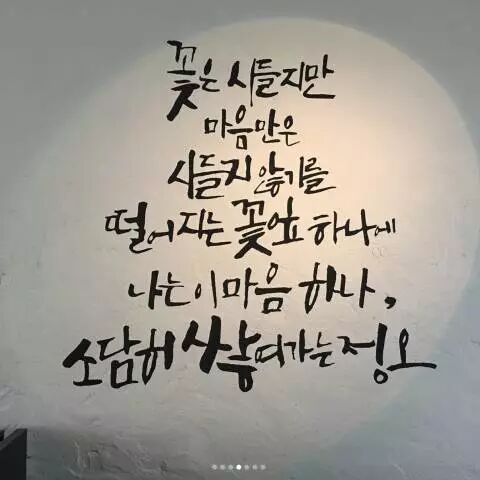 꽃은 시들지만
마음만은
시들지 않기를
떨어지는 꽃잎 하나에
나는 이 마음 하나,
소담히 사랑 여가는 정오